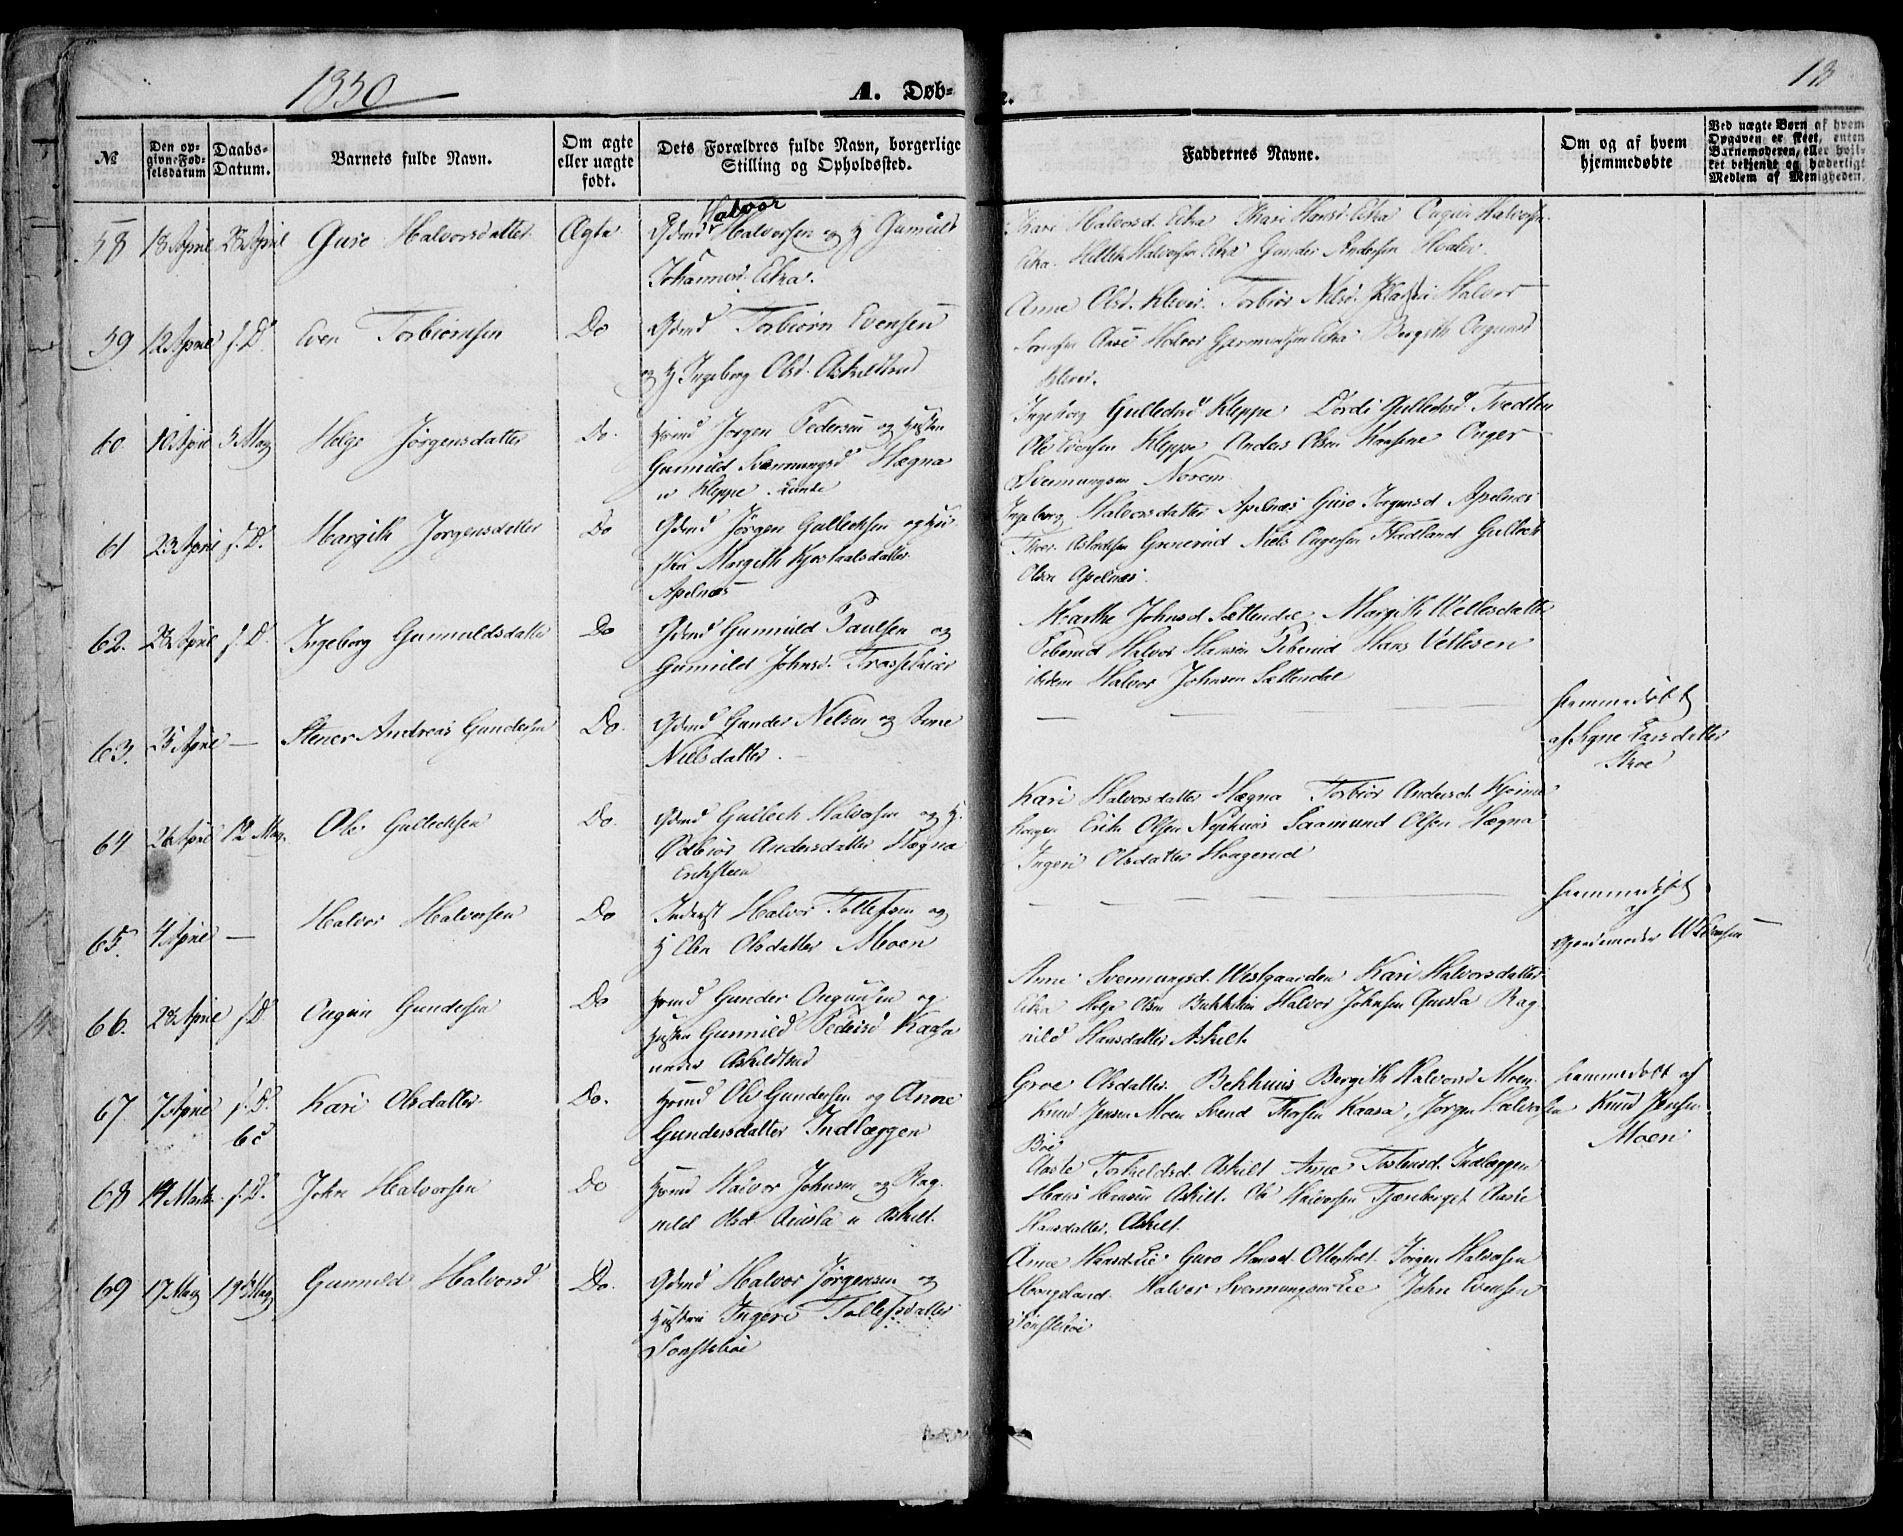 1850
A. Døb-
e.
18
№
Den op-
givne Fød-
selsdatum
Daabs-
Datum.
Barnets fulde Navn.
Om ægte
eller uægte
født.
Dets Forældres fulde Navn, borgerlige
Stilling og Opholdssted.
Faddernes Navne.
Om og af hvem
hjemmedøbte
Ved uægte Børn af hvem
Opgaven er skeet, enten
Barnemoderen, eller hvil-
ket bekjendt og hæderligt
Medlem af Menigheden.
58 13 April 25 April Guro Halvorsdatter Ægte Gdmd Halvor Halvorsen og H Gunnild
Johannesd. Eika.
Kari Halvorsd. Eika Kari Hansd. Eika Halvorsen
Eika. Kittil Halvorsen Eika Gunder Andersen
59 12 April f. D. Even Torbiørnsen Do Gdmd Torbiørn Evensen
og H Ingeborg Olsd. Askildtrud
Anne Olsd. Klevar. Torbiør Nilsd. Halvor
Halvor Gjermundsen Eika Bergith
Klevar.
60 10 April 5 May Helge Jørgensdatter Do. Hmd Jørgen Pedersen og Husten
Gunnild Svennungsd. Hægna
u Kleppe. Lunde
Ingeborg Gulleksd Kleppe Dordi Gulleksd Tvedten
Ole Evensen Kleppe Anders Olsen
Svennungsen Norem
61 23 April f. D. Margith Jørgensdatter Do Gdmd Jørgen Gulleksen og Hu-
stru Margith Kjostaalsdatter
Apelnæs
Ingeborg Halvorsdatter Apelnæs Guro Jørgensd Apelnæs
Thor Aslaksen Grønerud Niels
Olsen Apelnæs.
62. 22 April f. D. Ingeborg Gunnuldsdatter Do Gdmd Gunnuld Paulsen og
Gunnild Johnsd.
Marthe Johnsd Sættendal, Margith Vetlesdatter
Teberud Halvor Hansen Teberud Hans Vetlesen
ibidem Halvor Johnsen Sættendal
63. 25 April — Stener Andreas Gundersen Do. Gdmd Gunder Nilsen og Anne
Nielsdatter.
hiemmedøbt
af Signe Larsdatter
Moe
64 26 April 12 May. Ole Gulleksen Do. Gdmd Gullech Halvorsen og H.
Ødbiør Andersdatter Hægna
Eriksteen
Kari Halvorsdatter Hægna Torbiør Andersd.
Erik Olsen Nyehuus Saamund Olsen Hægna
Ingeri Olsdatter Haagerud
65. 4 April — Halvor Halvorsen Do Inderst Halvor Tollefsen og
H Elen Olsdatter Moen
hiemmedøbt
af
Giordemoder
66. 28 April f. D Gundersen Do Hmd Gunder og
Husten Gunnild Pedersd Kaasa
under Askildtrud
Anne Svennungsd. Westgaarden Kari Halvorsdatter
Eika Helge Olsen Halvor Johnsen Rag-
nild Hansdatter Askilt.
67. 7 April f. D. Kari Olsdatter. Do. Hmd Ole Gundersen og Anne
Gundersdatter Indlæggen
Groe Olsdatter. Bekhuus Bergith Halvorsd Moen
Knud Jensen Moen Svend Thorsen Kaasa Jørgen Halvorsen
Bøe
hiemmedøbt af
Knud Jensen
Moen.
68 14 Marts f. D. John Halvorsen Do Hmd Halvor Johnsen og Rag-
nild Olsd. u Askilt.
Aaste Torkildsd. Askilt Anne Torstensd. Indlæggen
Hans Hansen Askilt. Ole Halvorsen Tjønberget Aaste
Hansdatter Askilt.
69 17 May 19 May Gunnild Halvorsd Do. Gdmd Halvor Jørgensen og
Hustru Ingeri Tollefsdatter
Sønstebøe
Anne Hansd. Lie Guro Hansd. Otterholt. Jørgen Halvorsen
Haugland. Halvor Svennungsen Lie John Evensen
Sønstebøe